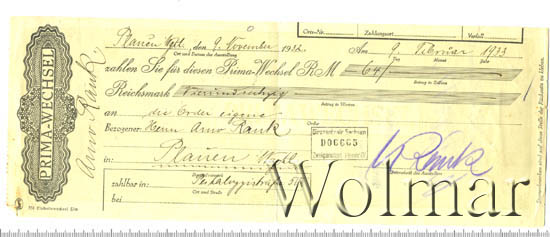 Orts-Nr. Zahlungsort Verfall
Plauen Vogtl., den 9. November 1932 Am 9. Februar 1933
Ort und Datum der Ausstellung Tag Monat Jahr
zahlen Sie für diesen Prima-Wechsel RM 64/
Betrag in Ziffern
Reichsmark Vierundsechzig
Betrag in Worten
an die Order eigene
Order
Bezogener: Herrn Arno Rank
in Plauen Vogtl.
Girozentrale Sachsen
D06665
Zweiganstalt
zahlbar in:
Ort und Straße
bei
Unterschrift des Ausstellers
PRIMA-WECHSEL
Arno Rank.
Wolmar